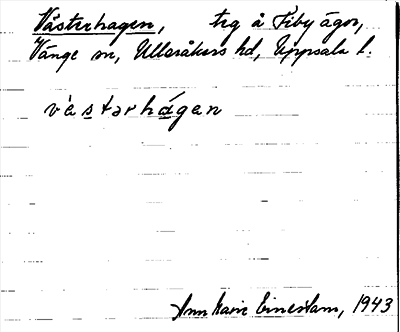 Västerhagen, trg å Fiby ägor,
Vänge sn, Ulleråkers hd, Uppsala l.
vὰstərhágan
Ann Marie Einerstam, 1943